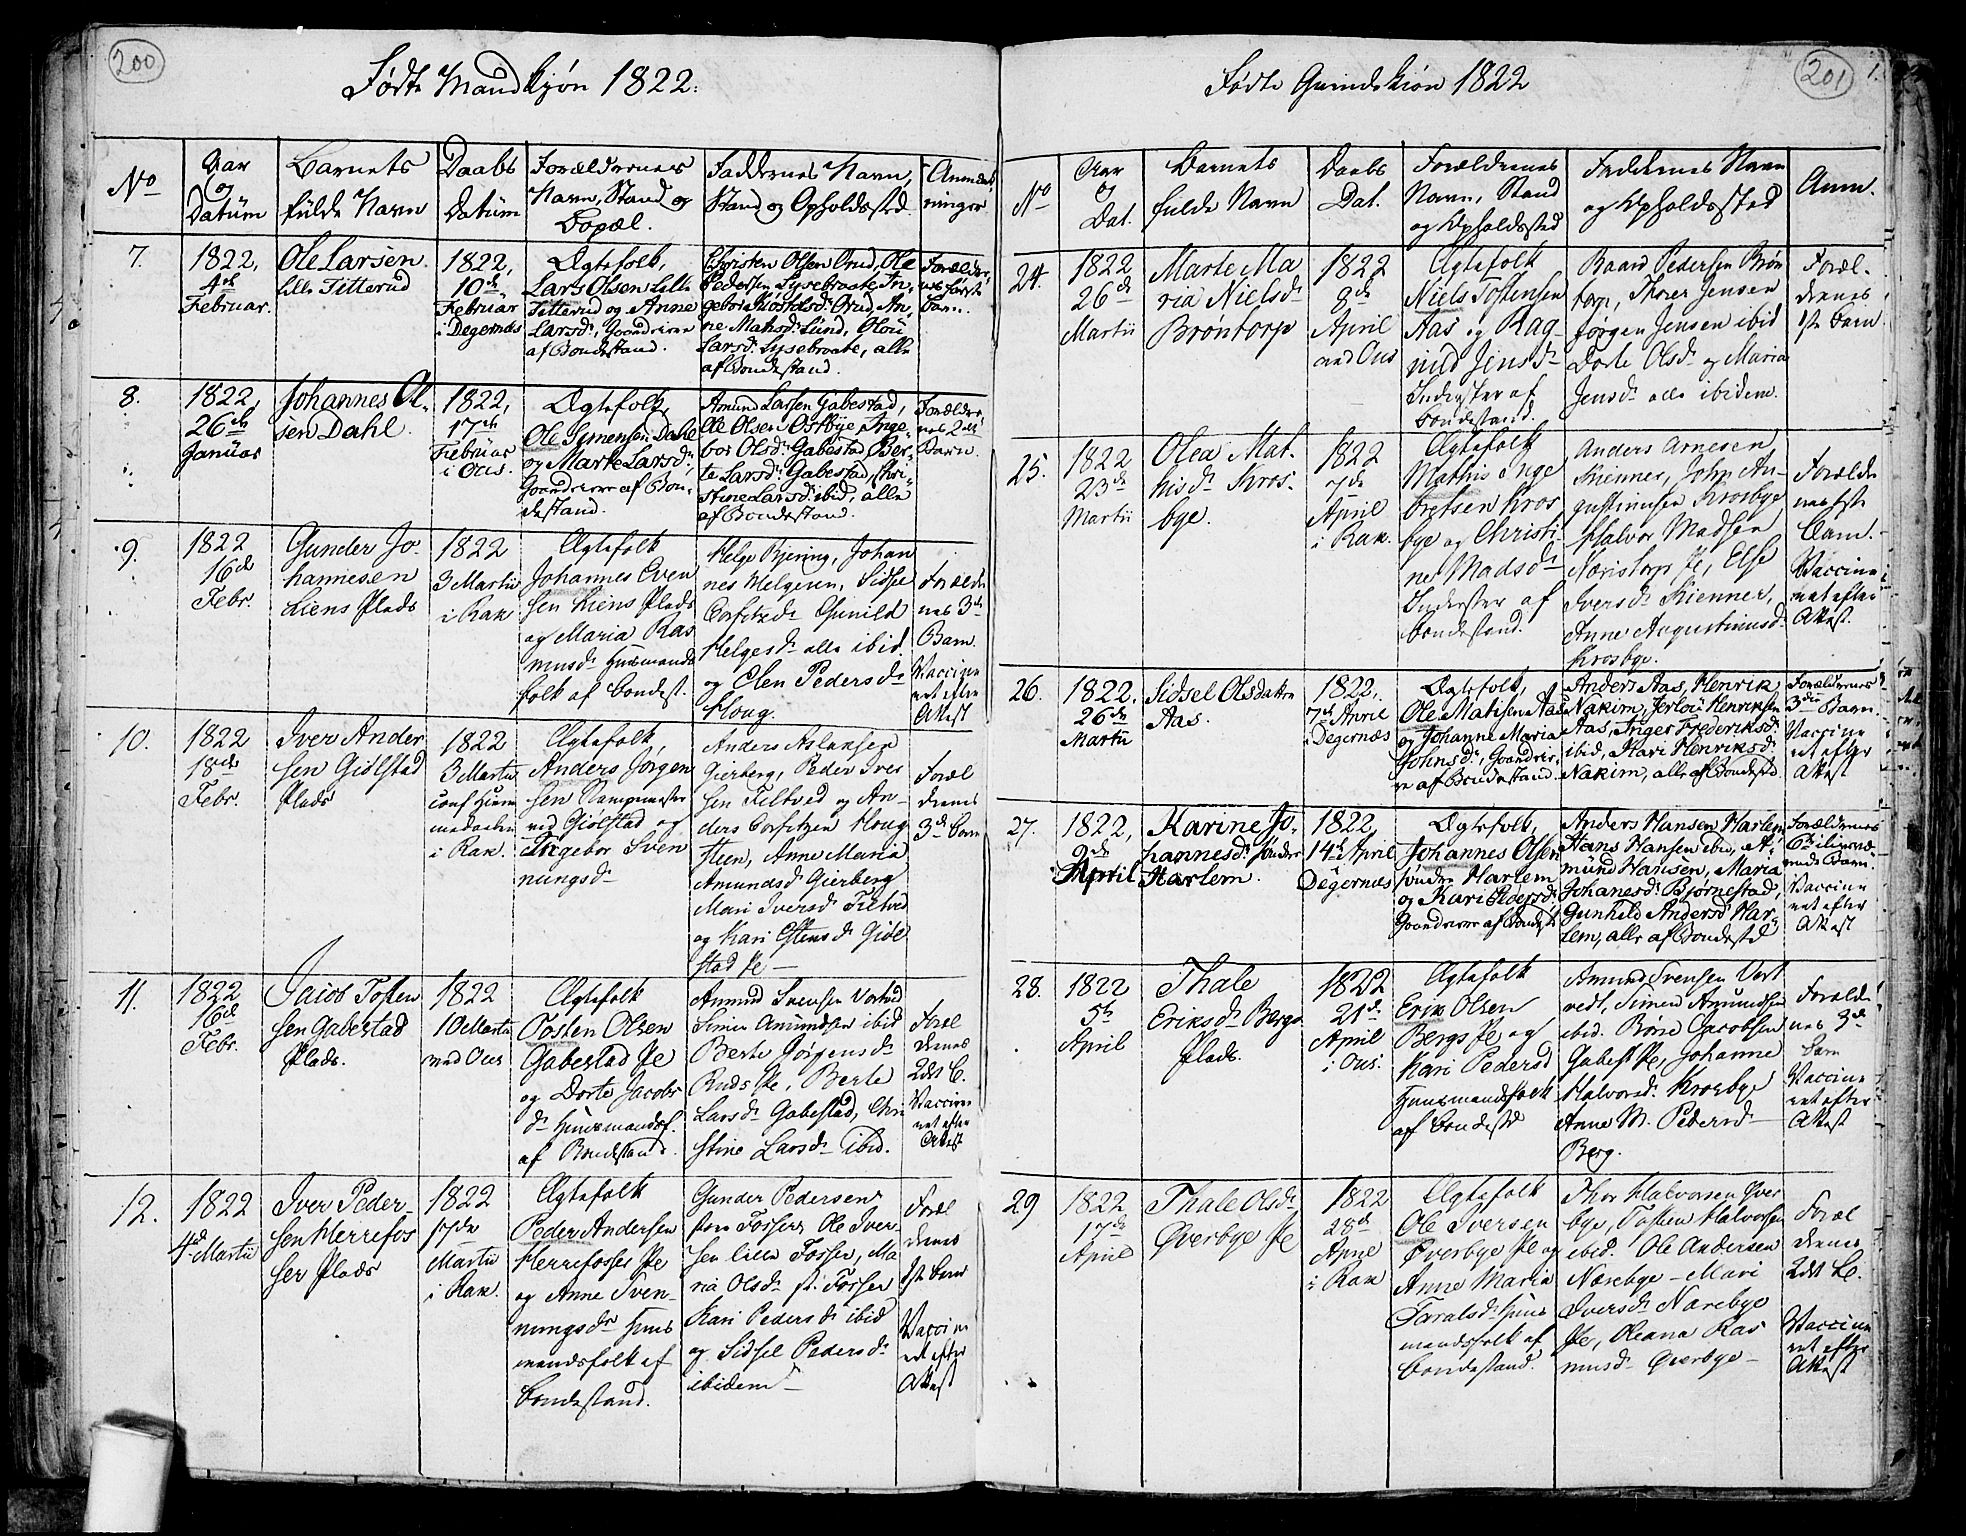 200
Fødte Mandkjøn 1822.
No
Aar
og
Datüm
Barnets
fülde Navn
Daabs
Datüm
Forældrernes
Navn, Stand og
Bopæl.
Faddernes Navn,
Stand og Opholdssted
Anmærk
ninger
7.
1822,
4de
Februar.
Ole Larsen
Lille Titterud
1822,
10de
Februar
i Degernæs
Ægtefolk,
Lars Olsen Lille
Titterud og Anne
Larsd:, Gaardeiere
af Bondestand.
Christen Olsen Orud, Ole
Pedersen Lysebraate, In-
gebor Kiøstelsd: Orud, An-
ne Mathsd: Lünd, Olou
Larsd: Lysebraate, alle
af Bondestand.
Forældre
nes første
Barn.
8.
1822,
26de
Janüar
Johannes Ol-
sen Dahl.
1822,
17de
Februar
i Ous.
Ægtefolk,
Ole Simensen Dahl
og Marte Larsd:,
Gaardeiere af Bon-
destand.
Amund Larsen Gabestad,
Ole Olsen Ostbye, Inge-
bor Olsd: Gabestad, Ber-
te Larsd: Gabestad, Chri-
stine Larsd: ibid, alle
af Bondestand.
Forældre
nes 2det
Barn.
9.
1822
16de
Febr.
Gunder Jo-
hannesen
Liens Plads
1822
3 Martii
i Rak
Ægtefolk
Johannes Even
sen Liens Plads
og Maria Ras
musd: Huusmands
folk af Bondest.
Helge Bjering, Johan
nes Helgesen, Sidsel
Corfitzd: Gunild
Helgesd: alle ibid.
og Elen Pedersd:
Houg.
Forældre
nes 3de
Barn
Vaccine
ret efter
Attest
10.
1822
18de
Febr.
Iver Ander
sen Giølstad
Plads
1822
3 Martii
conf hiem
medaaben
i Rak.
Ægtefolk,
Anders Jørgen
sen Stampemester
ved Giølstad og
Ingebor Sven
nungsd:
Anders Aslaksen
Gierberg, Peder Iver
sen Tiltved og An-
ders Corfitzen Houg
steen, Anne Maria
Amundsd: Gierberg
Mari Iversd: Tiltved
og Kari Estensd: Giøl
stad Pe
Foræl
drenes
3de Barn
11.
1822
16de
Febr.
Jacob Tosten
sen Gabestad
Plads.
1822
10 Martii
ved Ous
Ægtefolk
Tosten Olsen
Gabestad Pe
og Dorte Jacobs
d: Huusmandsf.
af Bondestand.
Amund Svensen Vestved
Simen Amundsen ibid
Berte Jørgensd:
Ruds Pe, Berte
Larsd: Gabestad, Chri
stine Larsd: ibid.
Foræl
drenes
2det B.
Vaccine
ret efter
Attest
12.
1822
4de Martii
Iver Peder-
sen Herrefos
ser Plads
1822
17de
Martii
i Rak.
Ægtefolk
Peder Andersen
Herrefosser Pe
og Anne Sven-
nungsd: Huus
mandsfolk af
Bondestand.
Gunder Pedersen
store Fosser, Ole Iver-
sen lille Fosser, Ma
ria Olsd: st. Fosser
Kari Pedersd: ibid
og Sidsel Pedersd:
ibidem
Foræl
drenes
1ste Barn
Vaccine
ret efter
Attest
201
1.
Fødte Qvindekiøn 1822
No
Aar
og
Dat.
Barnets
fulde Navn
Daabs
Dat.
Forældrenes
Navn, Stand
og Opholdssted
Faddernes Navn
og Opholdssted
Anm.
24.
1822
26de
Martii
Marte Ma
ria Nielsd:
Brøntorp
1822
8de
April
ved Ous
Ægtefolk
Niels Tostensen
Aas og Rag-
nild Jensd:
Inderster af
Bondestand.
Baard Pedersen Brøn
torp, Thorer Jensen
Jørgen Jensen ibid
Dorte Olsd: og Maria
Jensd: alle ibidem.
Foræl-
drenes
1ste Barn.
25.
1822
23de
Martii
Olea Mat-
hisd: Kros-
bye.
1822
7de
April
i Rak.
Ægtefolk
Mathis Inge
bretsen Kros
bye og Christi-
ne Madsd:
Inderster af
Bondestand.
Anders Arnesen
Kienner, John Au-
gustinusen Krosbye
Halvor Madsen
Næristorp Pe, Else
Iversd: Kienner,
Anne Augustinusd:
Krosbye.
Forældre
nes første
Barn.
Vaccine
ret efter
Attest.
26.
1822,
26de
Martii
Sidsel Olsdatter
Aas.
1822,
7de April
i Degernæs
Ægtefolk,
Ole Matisen Aas
og Johanne Maria
Johnsd:, Gaardeie-
re af Bondestand.
Anders Aas, Henrik
Nakim, Jerlou Henriksen
Aas, Inger Frederiksd:
ibid, Kari Henriksd:
Nakim, alle af Bondestd.
Forældrenes
3die Barn.
Vaccine
ret efter
Attest
27.
1822,
9de
April
Karine Jo-
hannesd: søndre
Harlem.
1822,
14de April
Degernæs
Ægtefolk,
Johannes Olsen
søndre Harlem
og Kari Pedersd:
Gaardeiere af Bondestd
Anders Hansen Harlem
Hans Hansen ibid, A-
mund Hansen, Maria
Johanesd: Bjørnestad,
Gunhild Andersd: Har-
lem, alle af Bondestd
Forældrenes
Barn
Vaccine
ret efter
Attest
28.
1822
5te
April
Thale
Eriksd: Bergs
Plads.
1822
21de
April
i Ous.
Ægtefolk
Erik Olsen
Bergs Pe og
Kari Pedersd
Huusmandsfolk
af Bondestd
Amund Svensen Vest
vedt, Simen Amundsen
ibid. Børre Jacobsen
Gabest Pe, Johanne
Halvorsd: Krosbye
Anne M. Pedersd:
Berg.
Forældre
nes 3de
Barn
Vaccine
ret efter
Attest
29
1822
17de
April
Thale Olsd:
Øverbye Pe
1822
28de
April
i Rak
Ægtefolk
Ole Iversen
Øverbye Pe og
Anne Maria
Taralsd: Huus
mandsfolk af
Bondestand.
Thor Halvorsen Øver
bye, Tosten Halvorsen
ibid. Ole Andersen
Nærebye - Mari
Iversd: Nærebye
Pe, Oleana Ras
musd: Øverbye -
Foræl
drenes
2det B.
Vaccine
ret efter
Attest